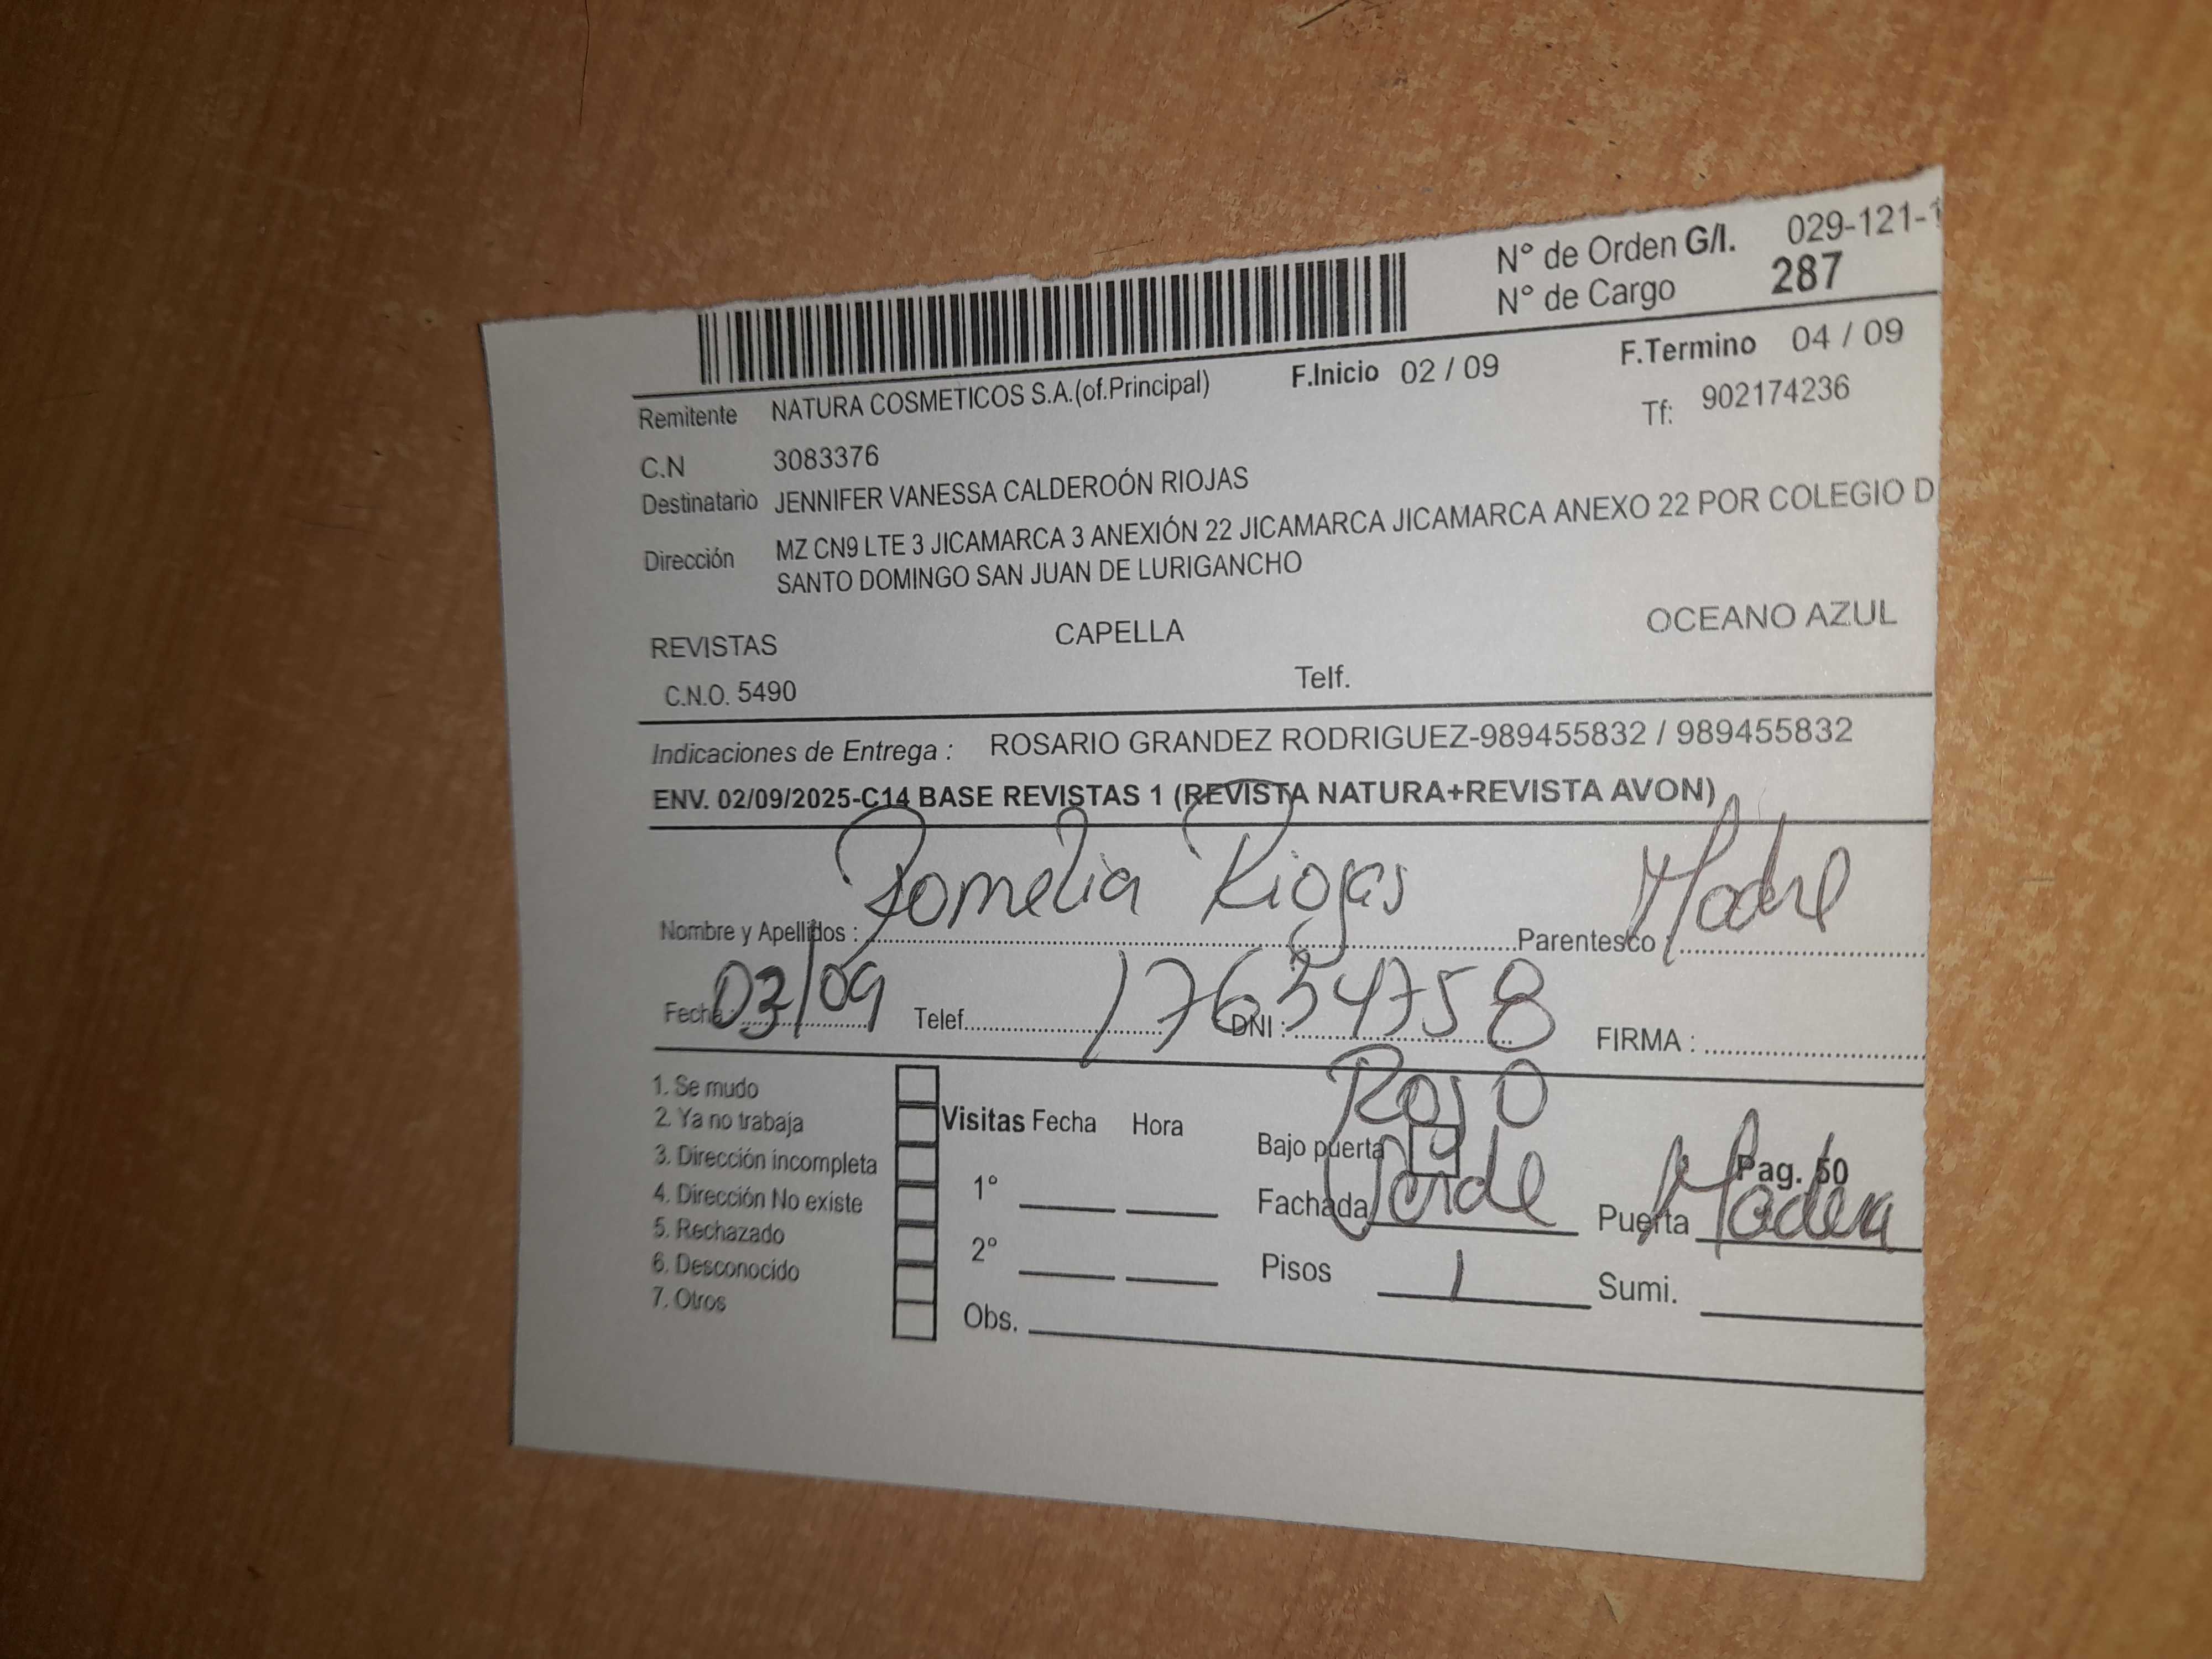 N° de Orden G/I. 029-121-1
N° de Cargo 287
F.Inicio 02 / 09 F.Termino 04 / 09
Remitente NATURA COSMETICOS S.A.(of.Principal) Tf: 902174236
C.N 3083376
Destinatario JENNIFER VANESSA CALDEROÓN RIOJAS
Dirección MZ CN9 LTE 3 JICAMARCA 3 ANEXIÓN 22 JICAMARCA JICAMARCA ANEXO 22 POR COLEGIO D
SANTO DOMINGO SAN JUAN DE LURIGANCHO
REVISTAS CAPELLA OCEANO AZUL
C.N.O. 5490 Telf.
Indicaciones de Entrega : ROSARIO GRANDEZ RODRIGUEZ-989455832 / 989455832
ENV. 02/09/2025-C14 BASE REVISTAS 1 (REVISTA NATURA+REVISTA AVON)
Nombre y Apellidos : Romelia Riojas Parentesco : Madre
Fecha 03/09 Telef. DNI : 17634758 FIRMA :
1. Se mudo
2. Ya no trabaja
3. Dirección incompleta
4. Dirección No existe
5. Rechazado
6. Desconocido
7. Otros
Visitas Fecha Hora
1°
2°
Obs.
Rojo
Bajo puerta y Pag. 50
Fachada Verde Puerta Madera
Pisos 1 Sumi.